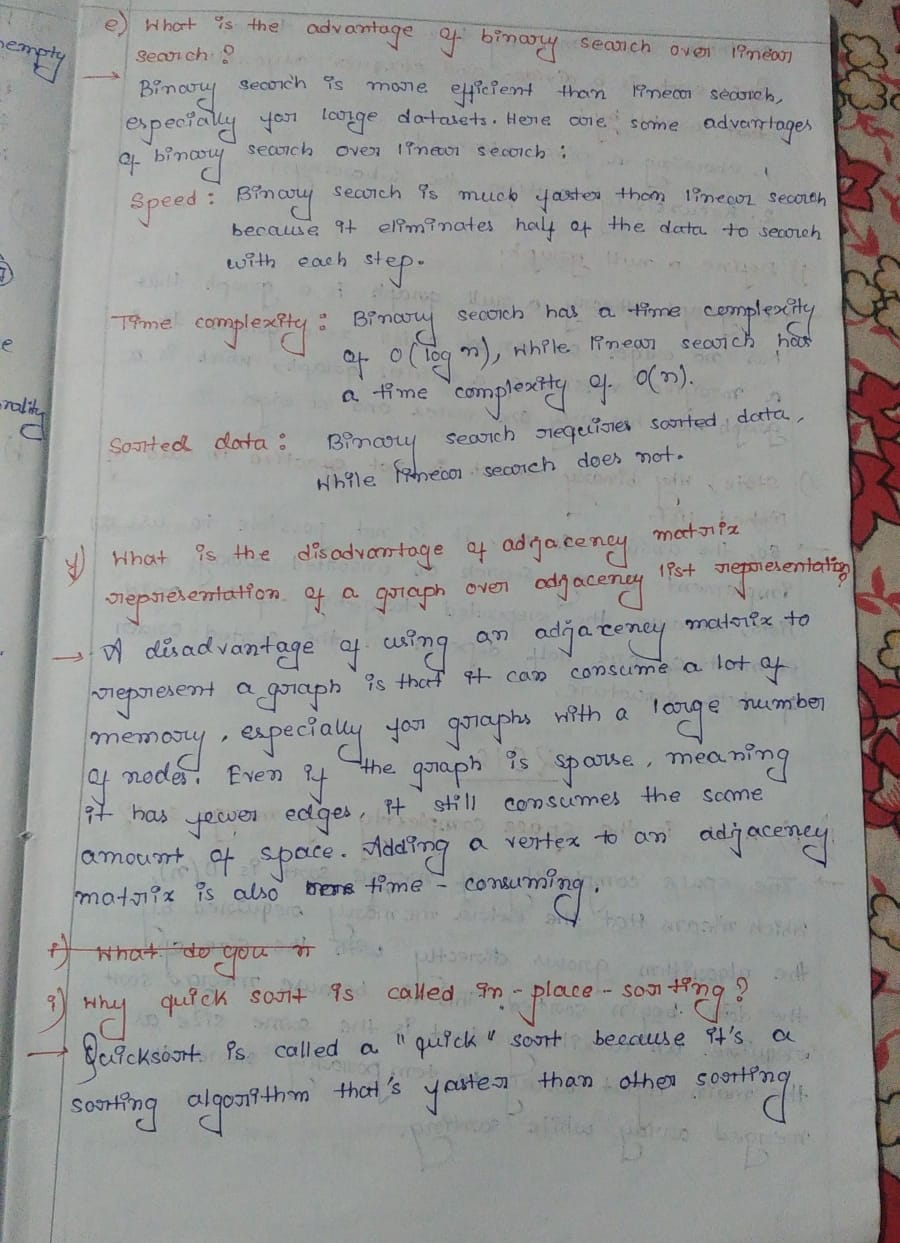 e) What is the advantage of binary search over linear
search?
→ Binary search is more efficient than linear search,
especially for large datasets. Here are some advantages
of binary search over linear search :
Speed : Binary search is much faster than linear search
because it eliminates half of the data to search
with each step.
Time complexity : Binary search has a time complexity
of O(log n), while linear search has
a time complexity of O(n).
Sorted data : Binary search requires sorted data,
while linear search does not.
f) What is the disadvantage of adjacency matrix
representation of a graph over adjacency list representation?
→ A disadvantage of using an adjacency matrix to
represent a graph is that it can consume a lot of
memory, especially for graphs with a large number
of nodes. Even if the graph is sparse, meaning
it has fewer edges, it still consumes the same
amount of space. Adding a vertex to an adjacency
matrix is also time-consuming.
i) What do you
i) Why quick sort is called in-place-sorting?
→ Quicksort is called a "quick" sort because it's a
sorting algorithm that's faster than other sorting
nempty
e
rality